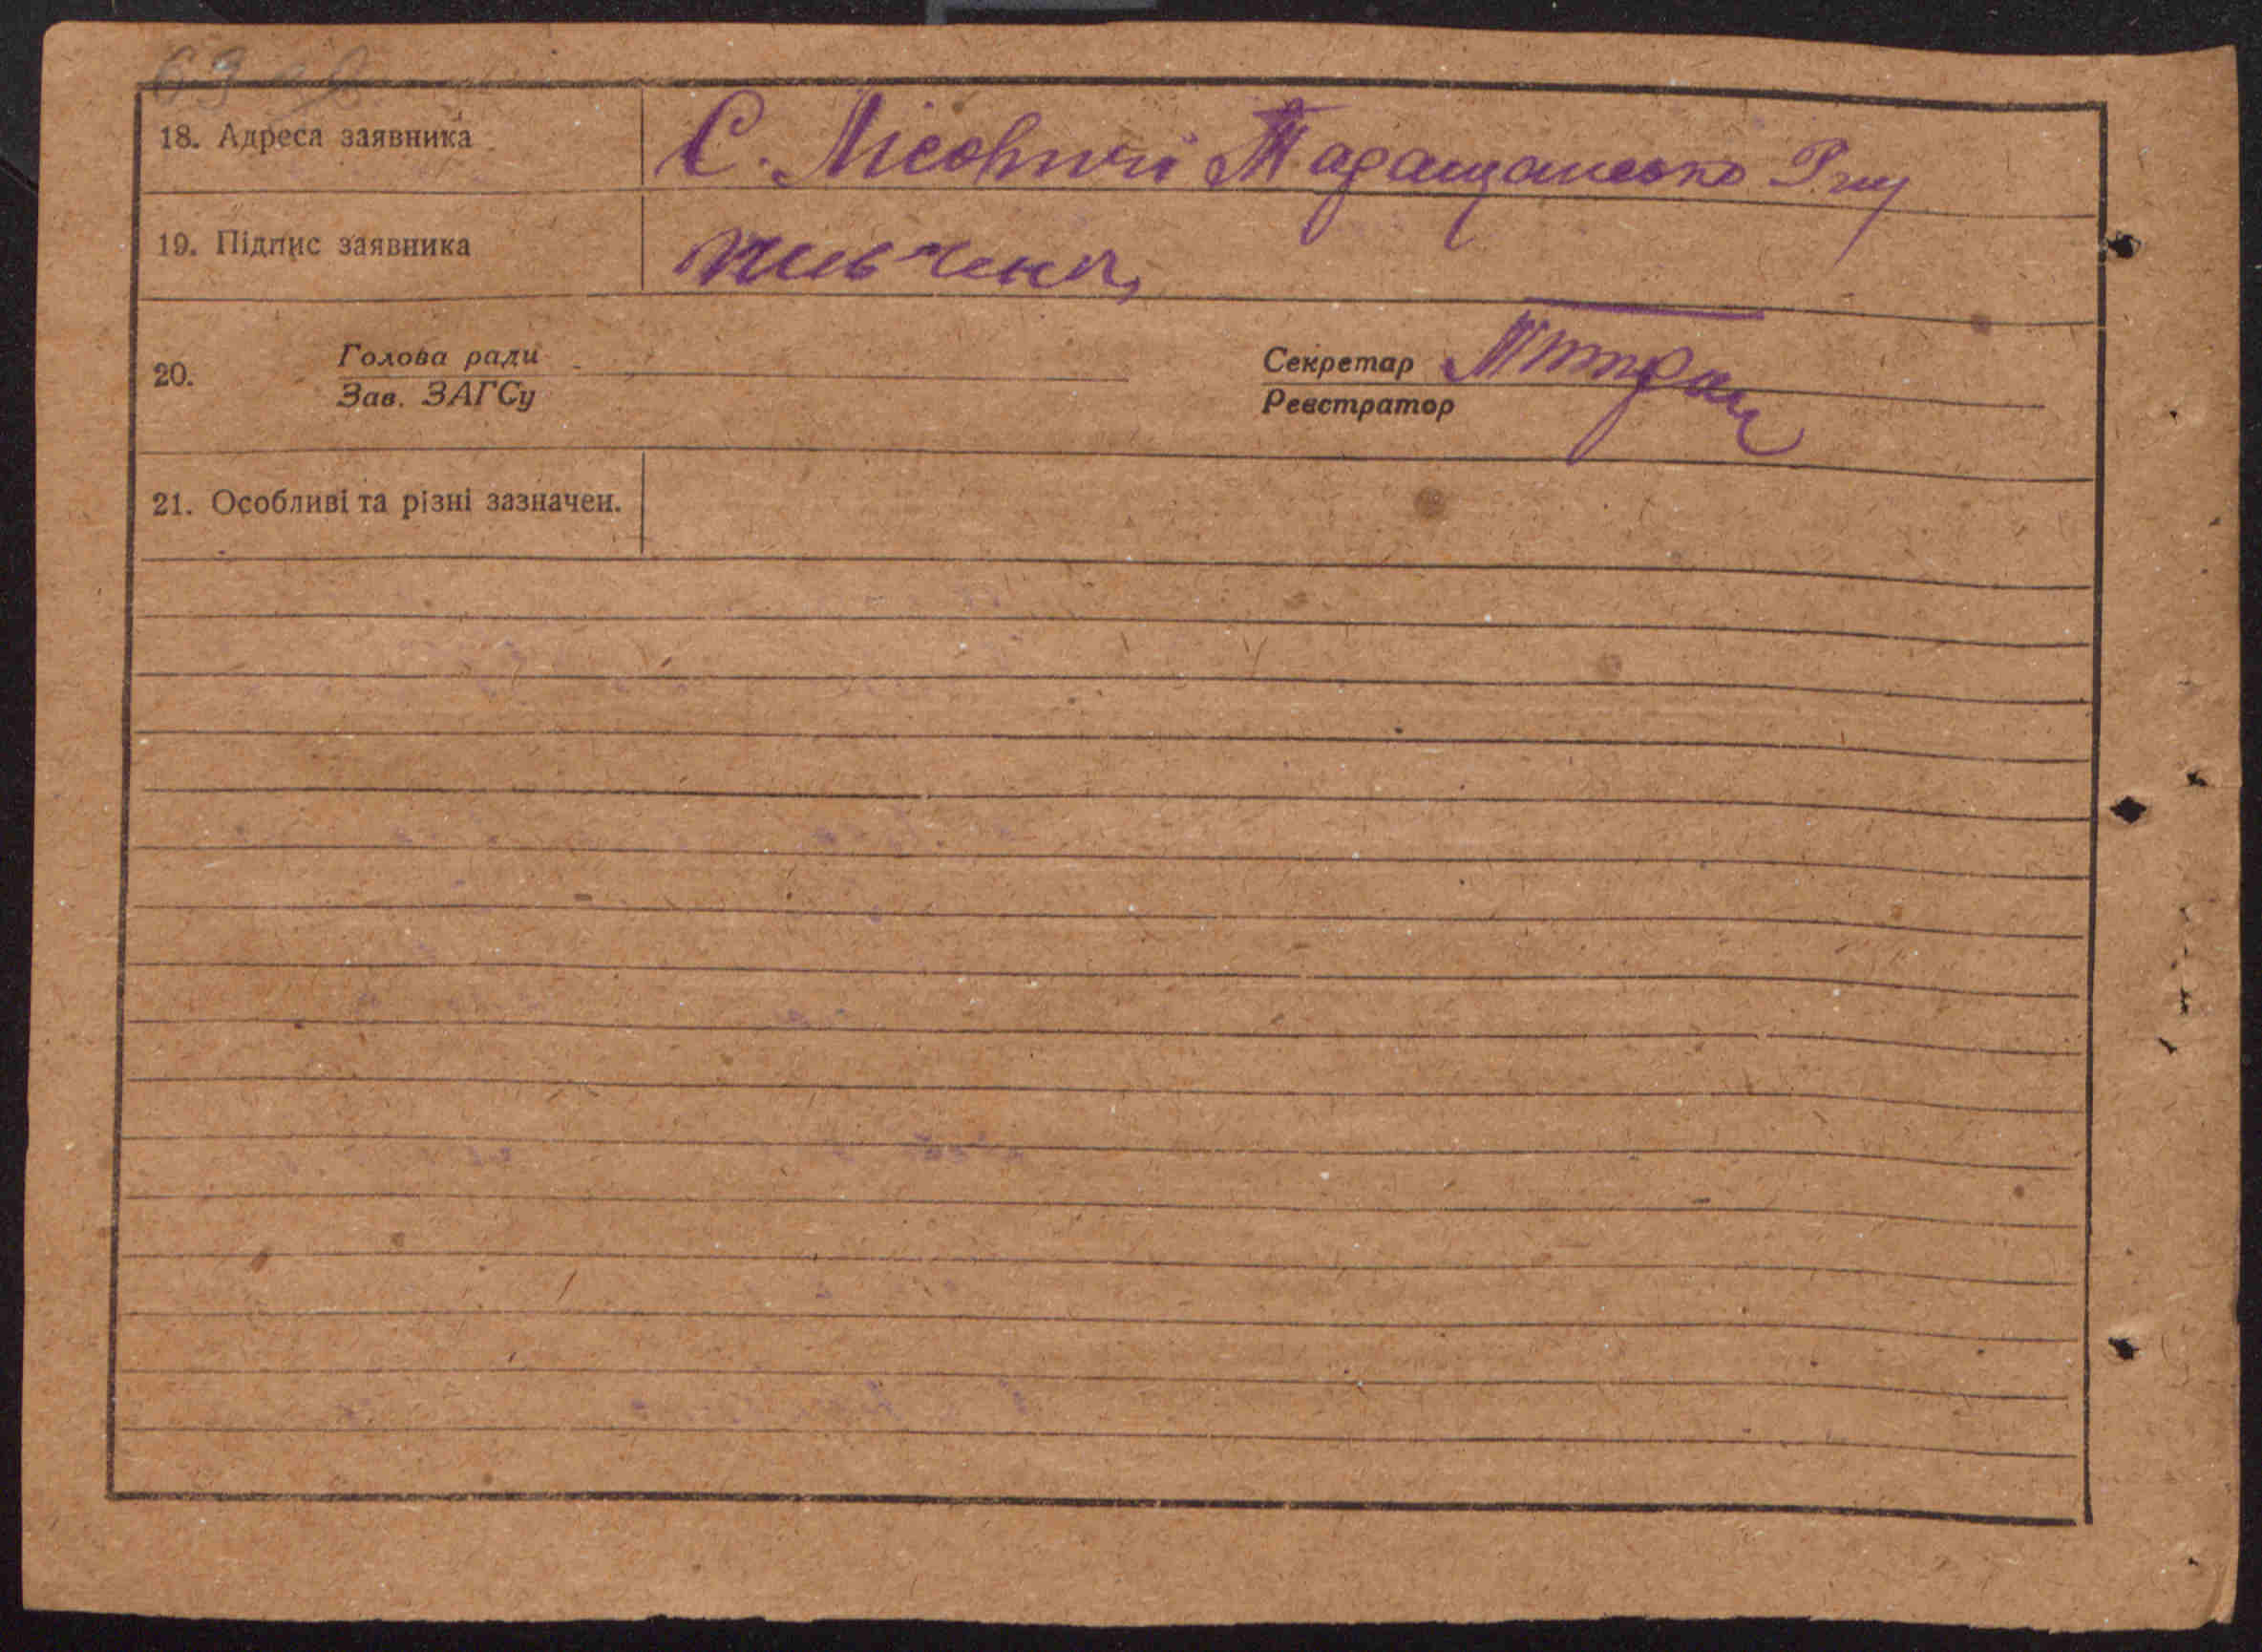 63
18. Адреса заявника С. Лісовичі Таращансько Р-ну
19. Підпис заявника
20. Голова ради Секретар
Зав. ЗАГСу Реєстратор
21. Особливі та різні зазначен.